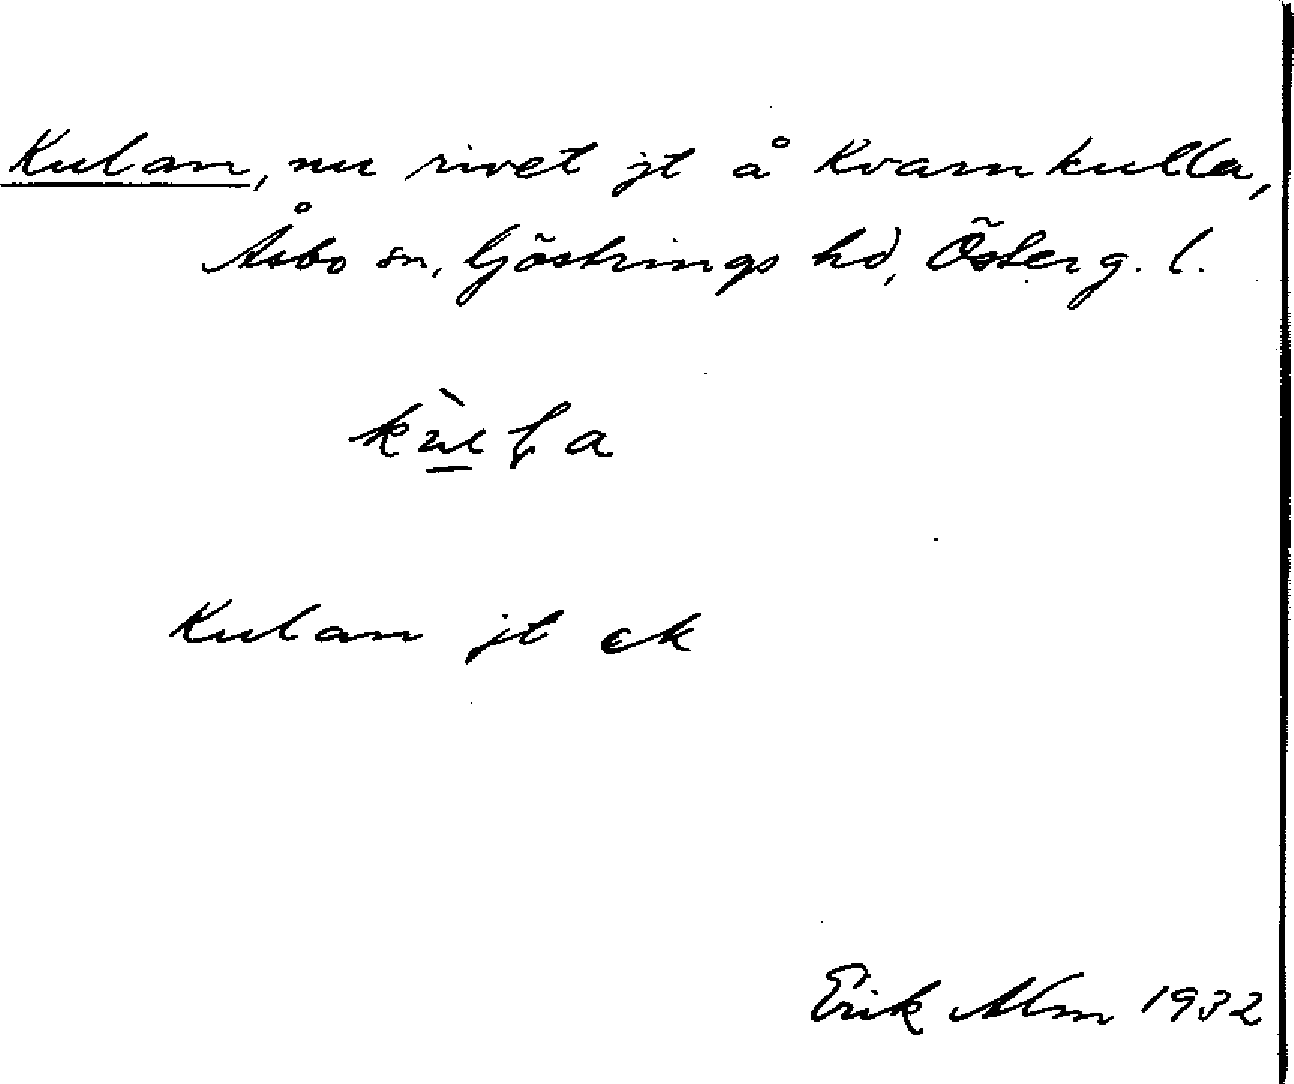 Kulan, nu rivet jt å Kvarnkulla,
Åsbo sn, Göstrings hd, Österg. l.
Kulan jt ek
Erik Alm 1932